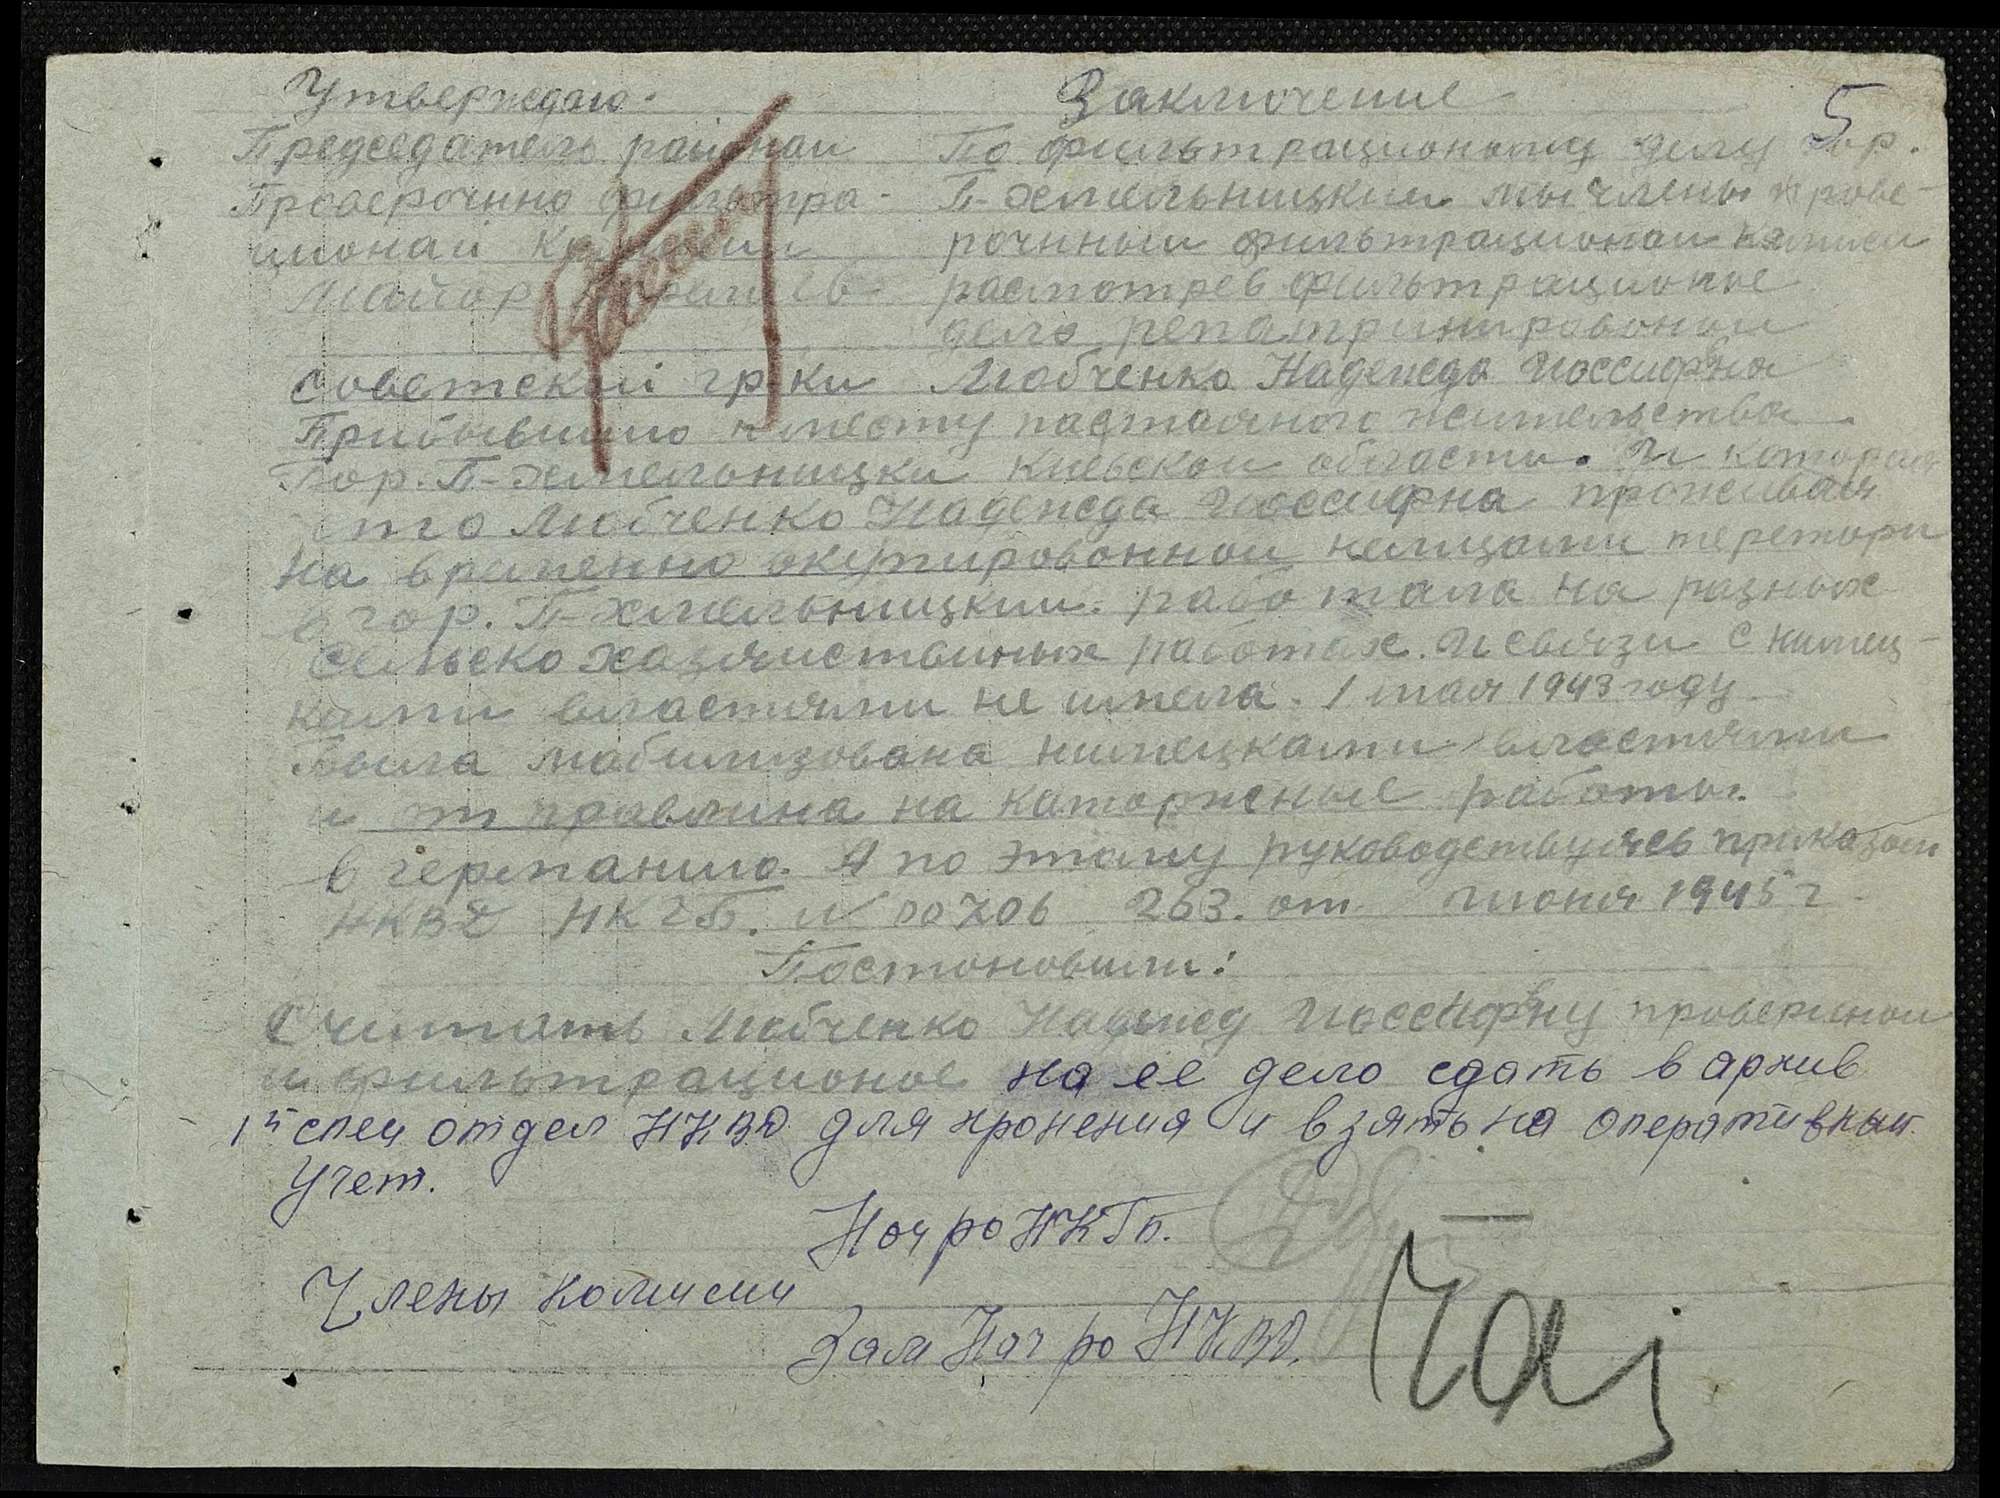 5
Утверждаю.
Председатель районай
Проверочнно фильтра-
ционай
Майор
Заключение
По фильтрационому делу гор.
П-хмельницкии мы члены прове-
рочнныи фильтрационаи камиси
расмотрев фильтрационое
дело репатриированои
Советскии гр-ки Любченко Надежда Иоссифна
Прибывшию к месту пастаяного жительства
Гор. П-хмельницки Киевскои области. И
что Любченко Надежда Иоссифна проживая
на временно окупированнои немцами теретори
в гор. П-хмельницкии. работала на разных
Сельско хазяиственых работах. И связи с нимец-
кими властями не имела. 1 мая 1943 году
Была мобилизована нимецками властями
и от правлина на каторжные работы.
в германию. А по этаму руководствуясь приказом
НКВД НКГБ. N 00706 263. от Июня 1945 г.
Постоновили:
Считать Любченко Надежд Иоссифну провериной
и фильтрационое на ее дело сдать в архив
1й спец отдел НКВД для хронения и взять на оперативныи
Учет.
Нач ро НКГБ.
Члены комисии
Зам Нач ро НКВД.